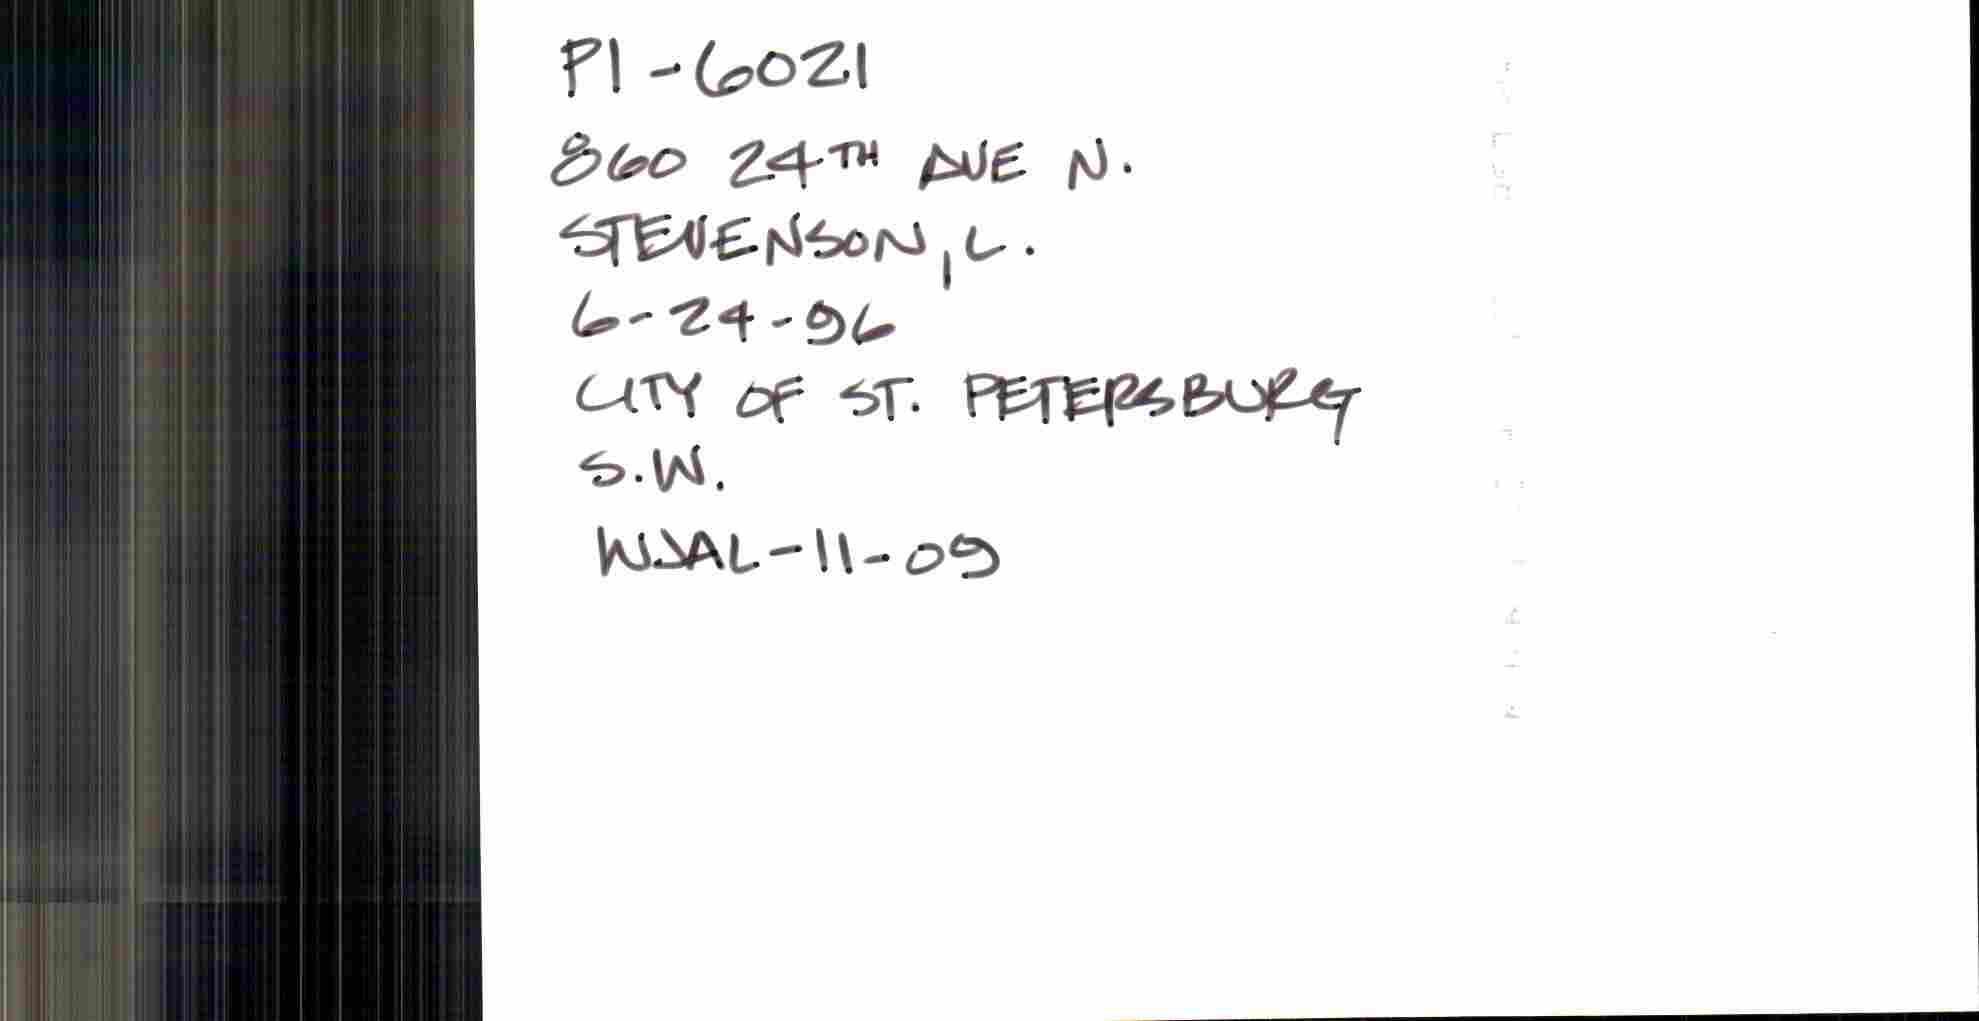 PI-6021
860 24TH AVE N.
STEVENSON, L.
6-24-96
CITY OF ST. PETERSBURG
S.W.
WJAL-11-09